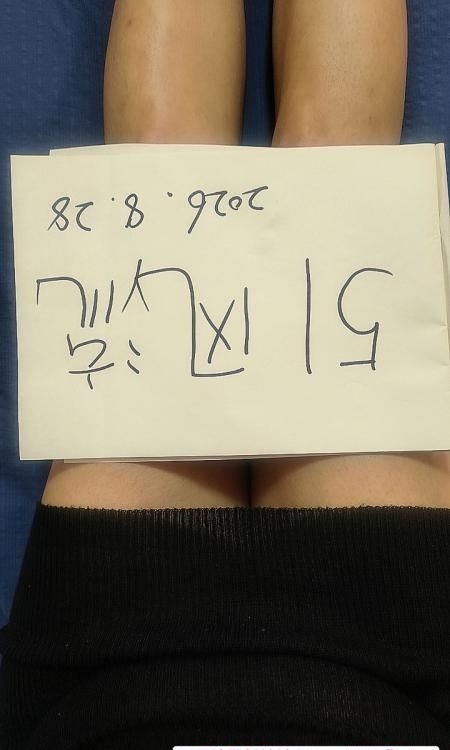 51风流
2026.8.28